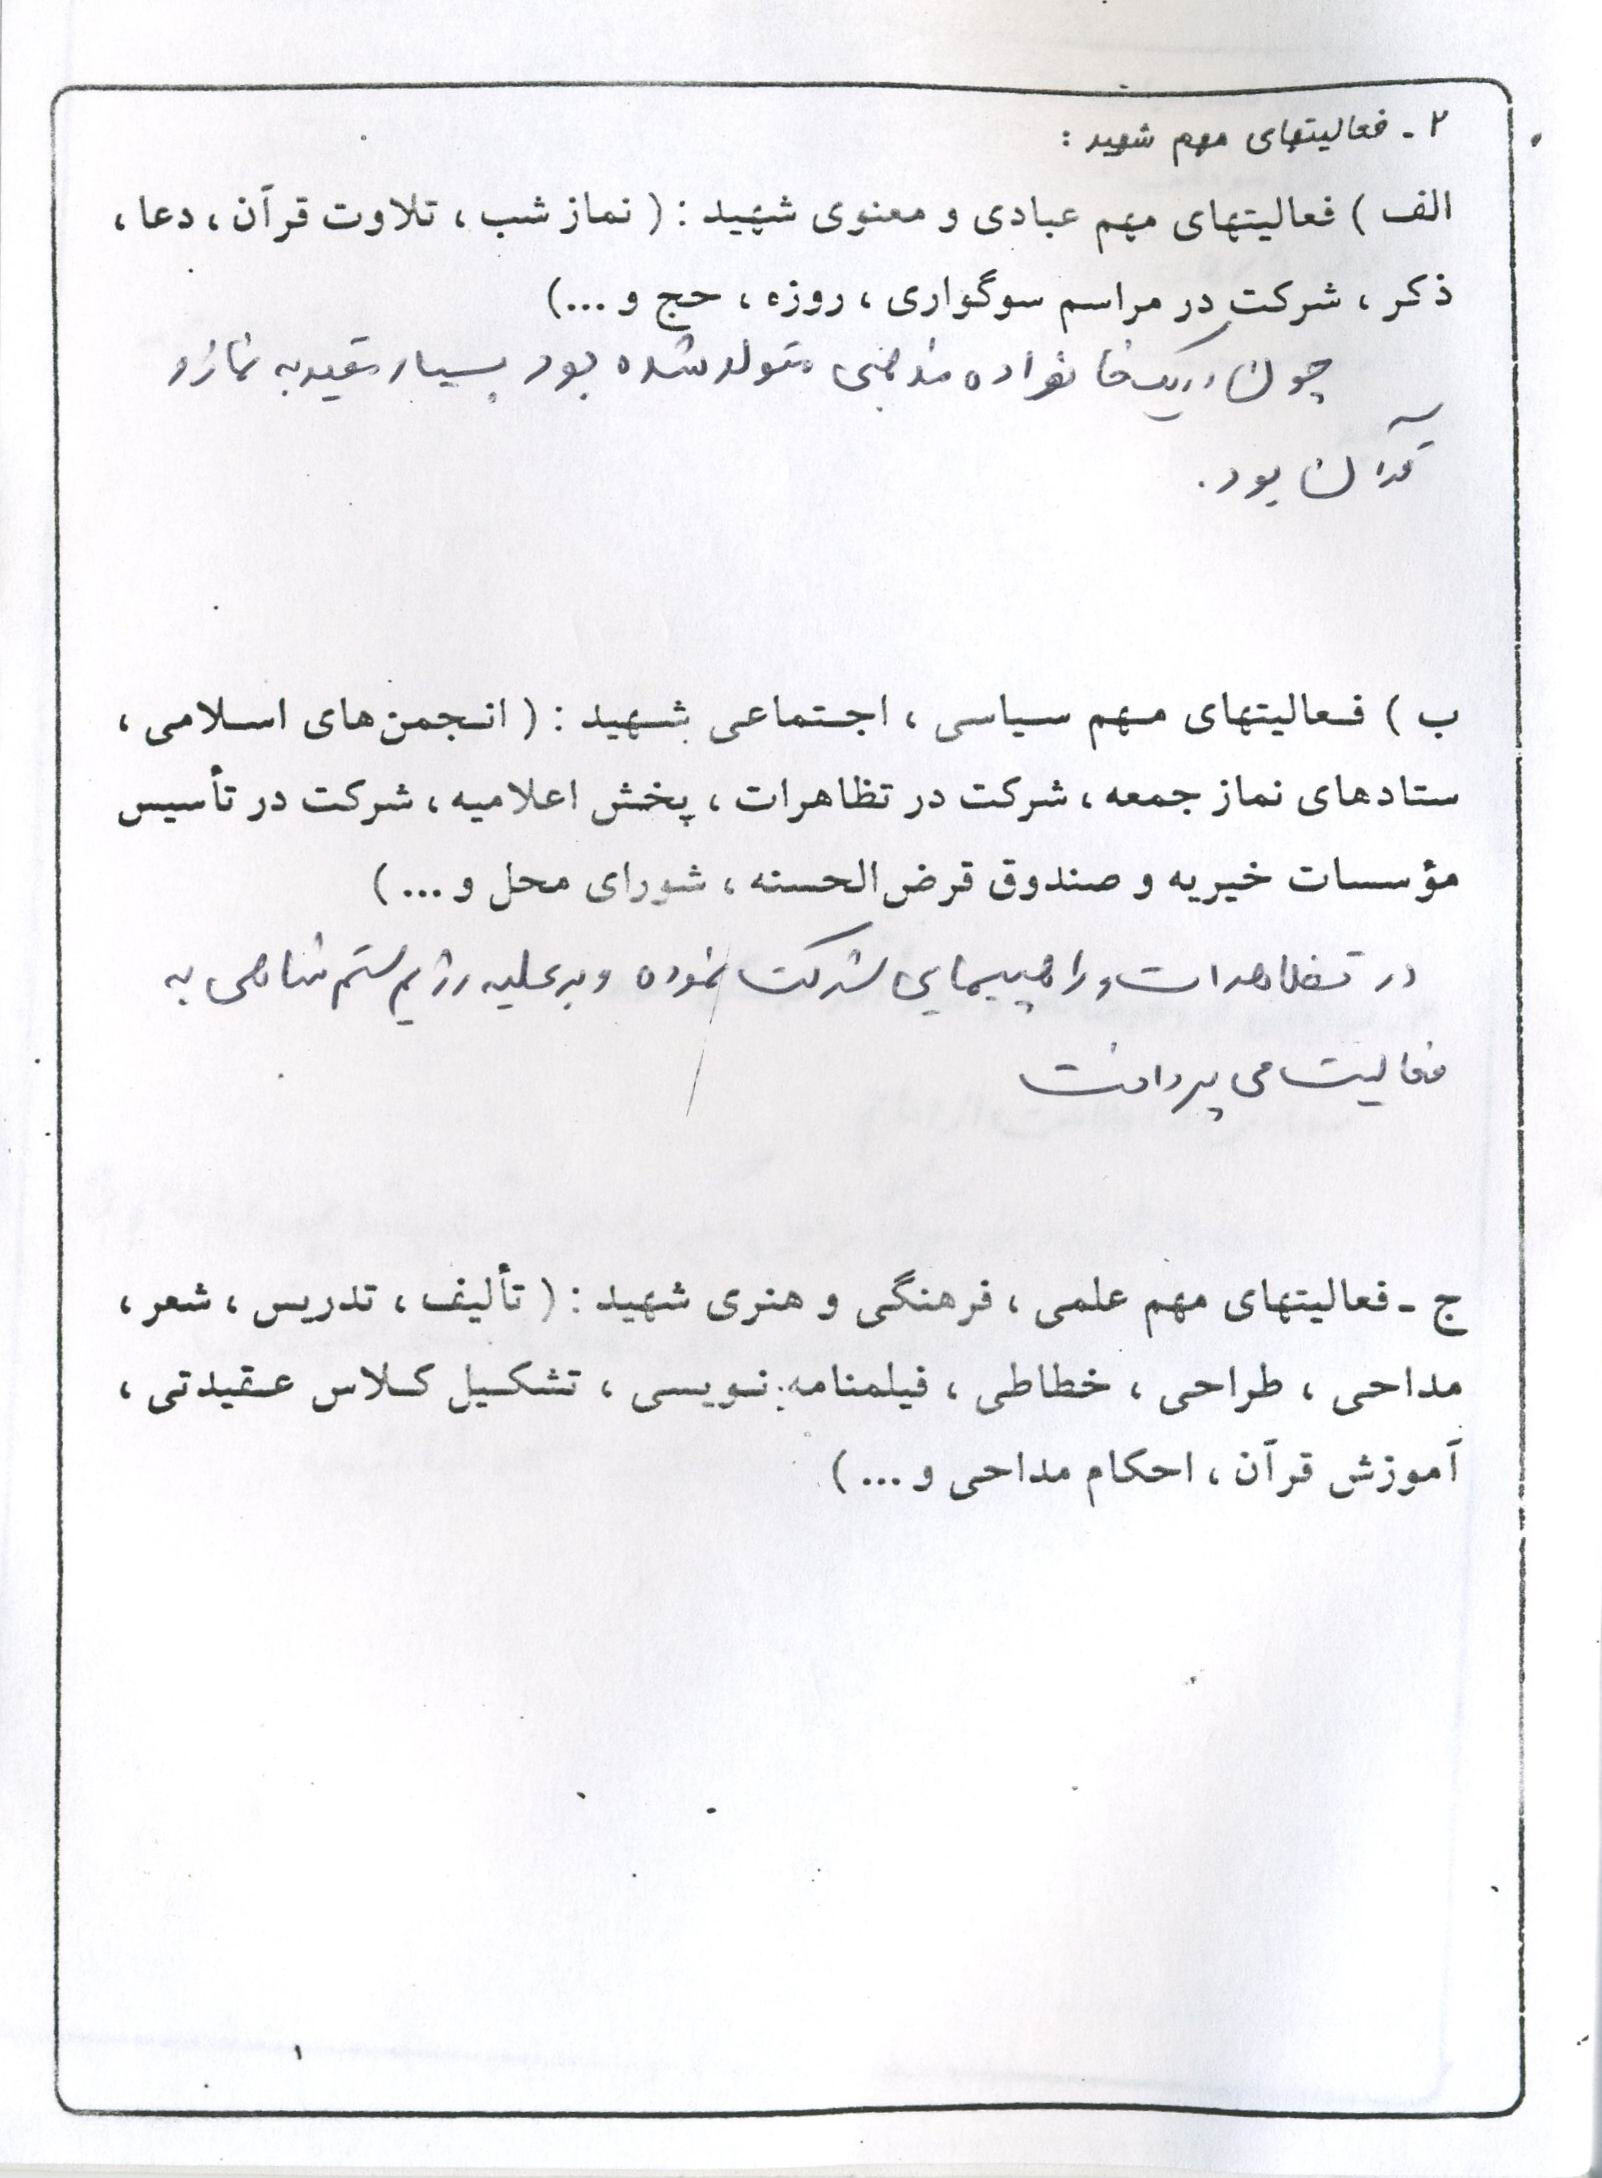 ۲ - فعالیتهای مهم شهید :
الف ) فعالیتهای مهم عبادی و معنوی شهید : ( نماز شب ، تلاوت قرآن ، دعا ،
ذکر ، شرکت در مراسم سوگواری ، روزه ، حج و ...)
چون در یک خانواده مذهبی متولد شده بود بسیار مقید به نماز و
قرآن بود .
ب ) فعالیتهای مهم سیاسی ، اجتماعی شهید : ( انجمن‌های اسلامی ،
ستادهای نماز جمعه ، شرکت در تظاهرات ، پخش اعلامیه ، شرکت در تأسیس
مؤسسات خیریه و صندوق قرض‌الحسنه ، شورای محل و ... )
در تظاهرات و راهپیمایی شرکت نموده و بر علیه رژیم ستم شاهی به
فعالیت می پرداخت
ج - فعالیتهای مهم علمی ، فرهنگی و هنری شهید : ( تألیف ، تدریس ، شعر ،
مداحی ، طراحی ، خطاطی ، فیلمنامه نویسی ، تشکیل کلاس عقیدتی ،
آموزش قرآن ، احکام مداحی و ... )